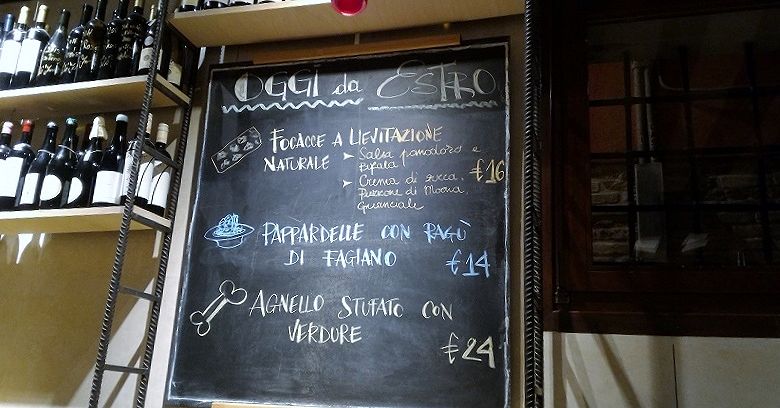 OGGI da ESTRO
FOCACCE A LIEVITAZIONE
NATURALE ➤ Salsa pomodoro e
bufala
➤ Crema di zucca,
Puzzone di Moena,
Guanciale
€16
PAPPARDELLE CON RAGÙ
DI FAGIANO
€14
AGNELLO STUFATO CON
VERDURE
€24